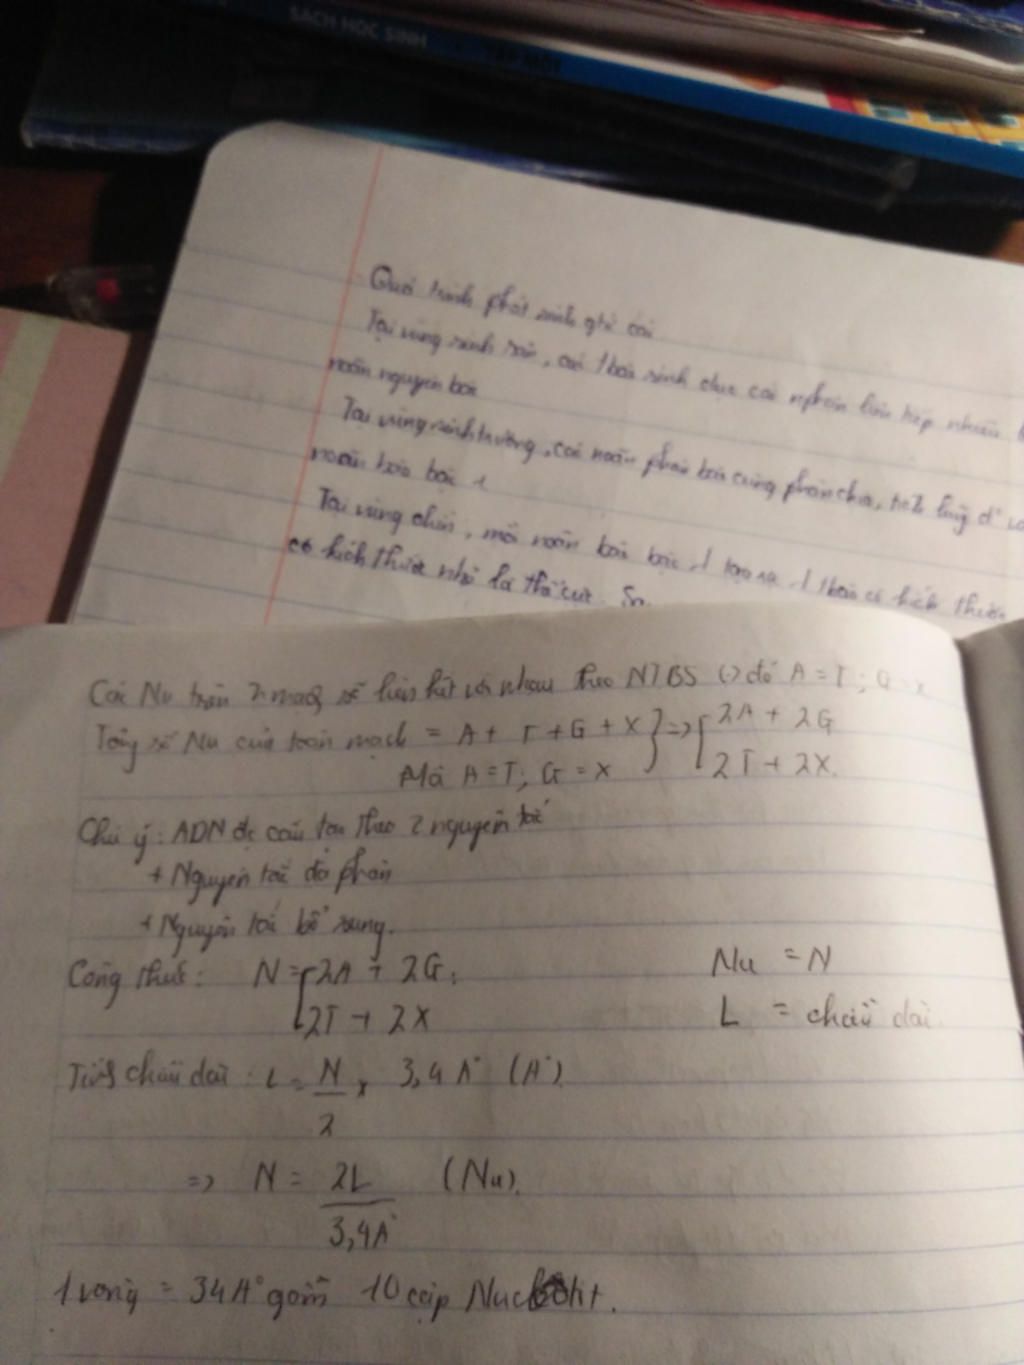 SÁCH HỌC SINH
Quá trình phát sinh gtử cái
Tại vùng sinh sản, cái tbào sinh dục cái nphân liên tiếp nhiều
noãn nguyên bào
Tại vùng sinh trưởng, các noãn bào cũng phân chia, tích luỹ
noãn bào bậc 1
Tại vùng chín, mỗi noãn bào bậc 1 tạo ra 1 tbào có kích thước
có kích thước nhỏ là thể cực.
Các Nu trên 2 mạch sẽ liên kết với nhau theo NTBS (-) đó A = T; G = X
Tổng số Nu của toàn mạch = A + T + G + X } => [ 2A + 2G
Mà A = T; G = X 2T + 2X.
Chú ý: ADN đc cấu tạo theo 2 nguyên tắc
+ Nguyên tắc đa phân
+ Nguyên tắc bổ sung.
Công thức: N = [ 2A + 2G; Nu = N
2T + 2X L = chiều dài.
Tính chiều dài: L = N/2 x 3,4 A° (A°).
=> N = 2L/3,4A° (Nu).
1 vòng = 34A° gồm 10 cặp